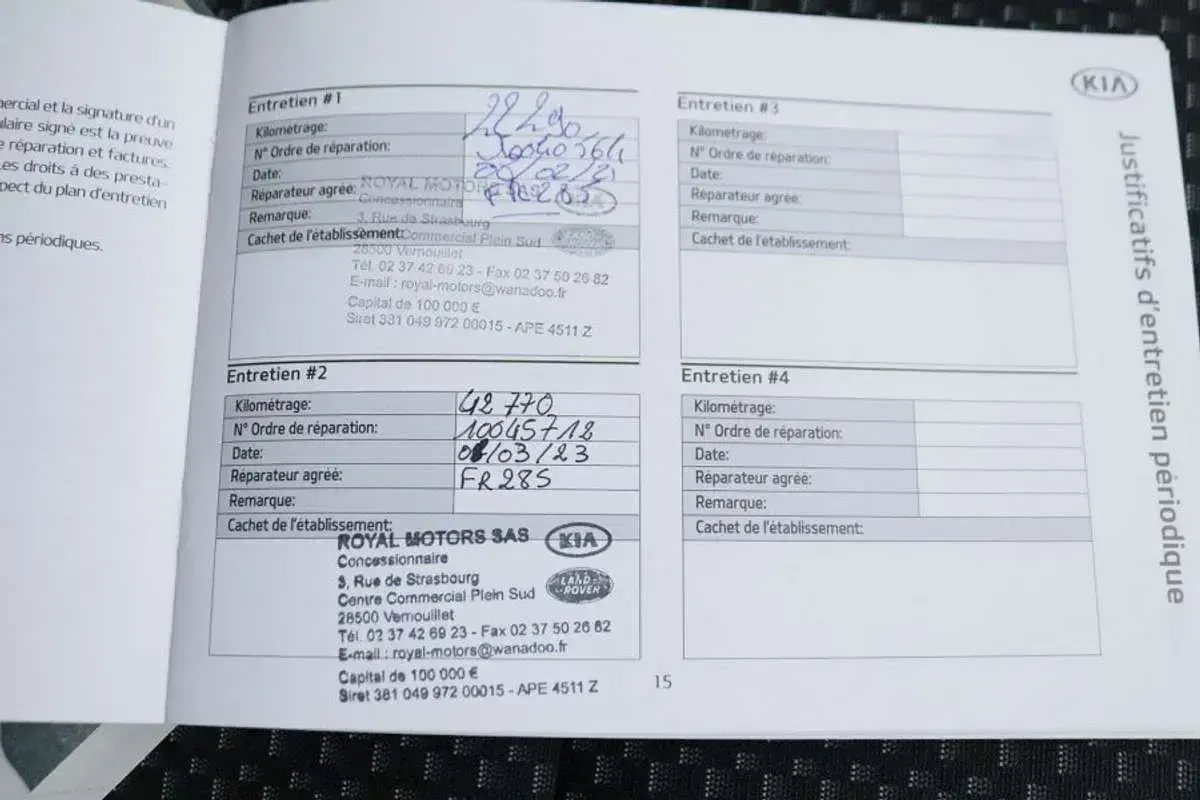 ercial et la signature d'un
laire signé est la preuve
réparation et factures.
es droits à des presta-
pect du plan d'entretien
ns périodiques.
KIA
Justificatifs d'entretien périodique
Entretien #1
Kilométrage: 22290
N° Ordre de réparation:
Date: /02/21
Réparateur agréé: FR285
Remarque:
Cachet de l'établissement:
ROYAL MOTORS
Concessionnaire
3, Rue de Strasbourg
Commercial Plein Sud
28500 Vernouillet
Tél. 02 37 42 69 23 - Fax 02 37 50 26 82
E-mail : royal-motors@wanadoo.fr
Capital de 100 000 €
Siret 381 049 972 00015 - APE 4511 Z
Entretien #2
Kilométrage: 42 770
N° Ordre de réparation: 10045712
Date: /03/23
Réparateur agréé: FR285
Remarque:
Cachet de l'établissement:
ROYAL MOTORS SAS KIA
Concessionnaire
3, Rue de Strasbourg LAND ROVER
Centre Commercial Plein Sud
28500 Vernouillet
Tél. 02 37 42 69 23 - Fax 02 37 50 26 82
E-mail : royal-motors@wanadoo.fr
Capital de 100 000 €
Siret 381 049 972 00015 - APE 4511 Z
Entretien #3
Kilométrage:
N° Ordre de réparation:
Date:
Réparateur agréé:
Remarque:
Cachet de l'établissement:
Entretien #4
Kilométrage:
N° Ordre de réparation:
Date:
Réparateur agréé:
Remarque:
Cachet de l'établissement:
15